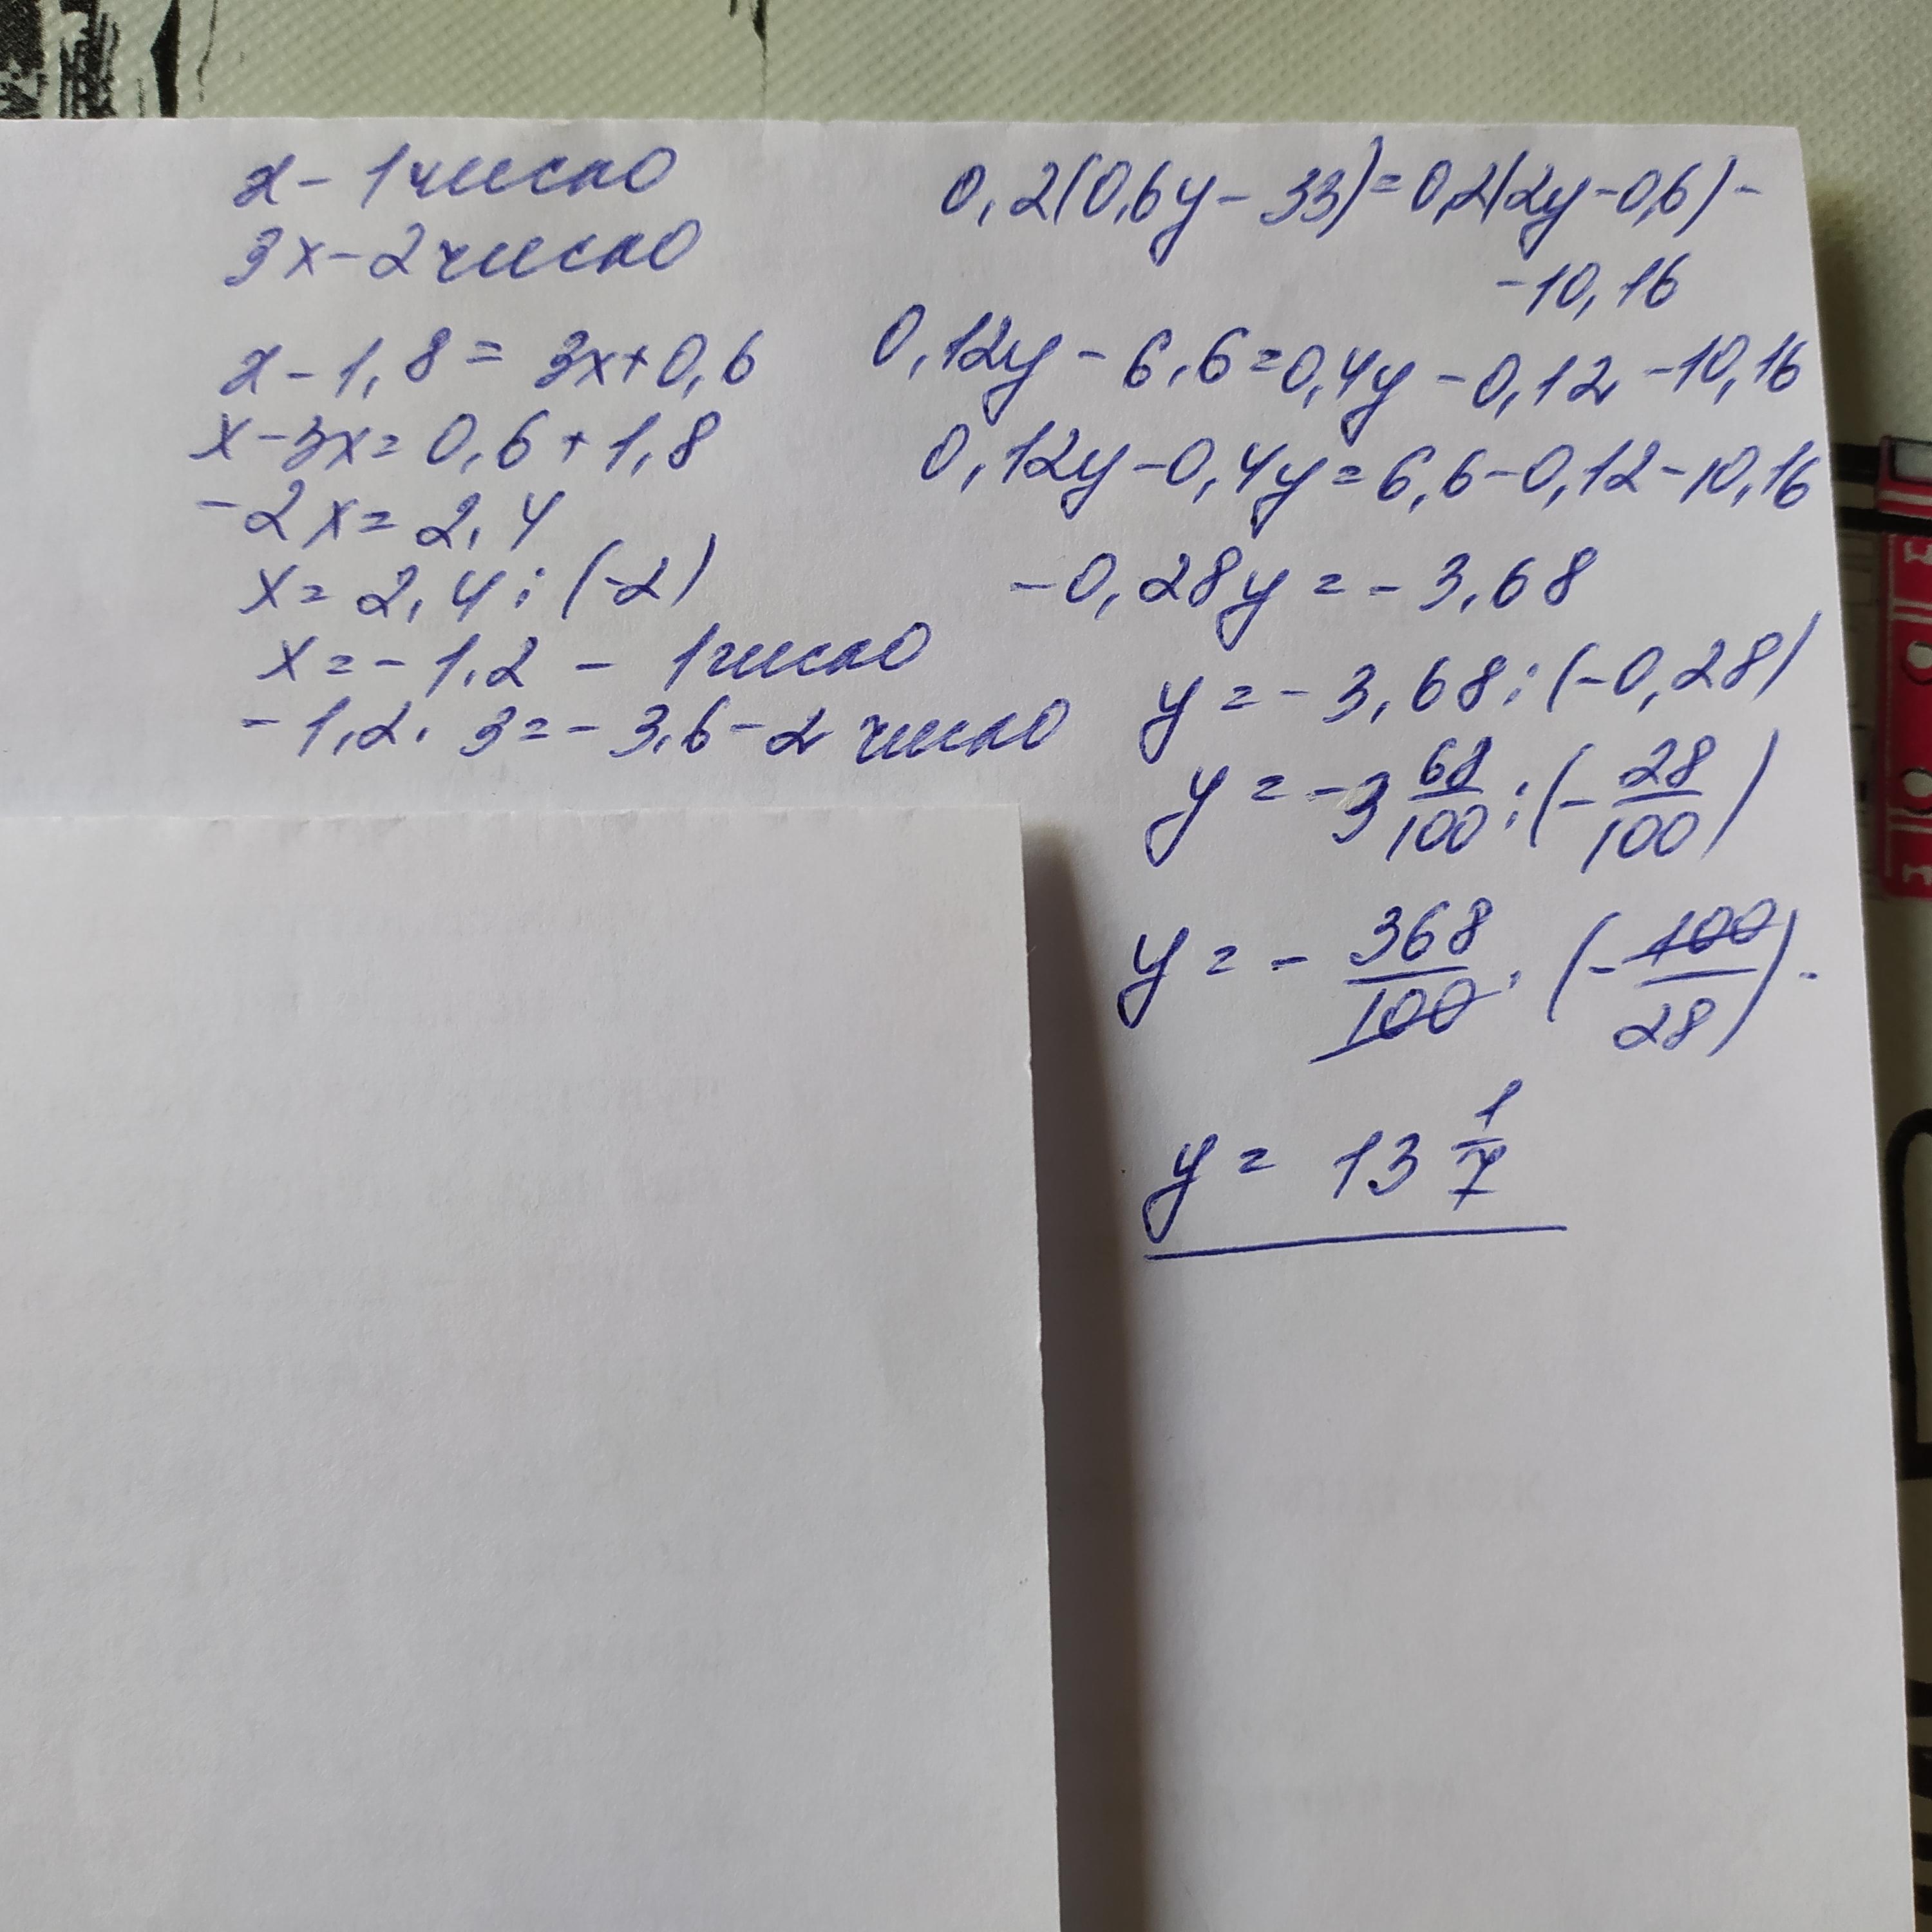 x - 1 число
3x - 2 число
x - 1,8 = 3x + 0,6
x - 3x = 0,6 + 1,8
- 2x = 2,4
x = 2,4 : (-2)
x = - 1,2 - 1 число
- 1,2 · 3 = - 3,6 - 2 число
0,2(0,6y - 33) = 0,2(2y - 0,6) -
- 10,16
0,12y - 6,6 = 0,4y - 0,12 - 10,16
0,12y - 0,4y = 6,6 - 0,12 - 10,16
- 0,28y = - 3,68
y = - 3,68 : (- 0,28)
y = - 3 68/100 : (- 28/100)
y = - 368/100 · (- 100/28) -
y = 13 1/7